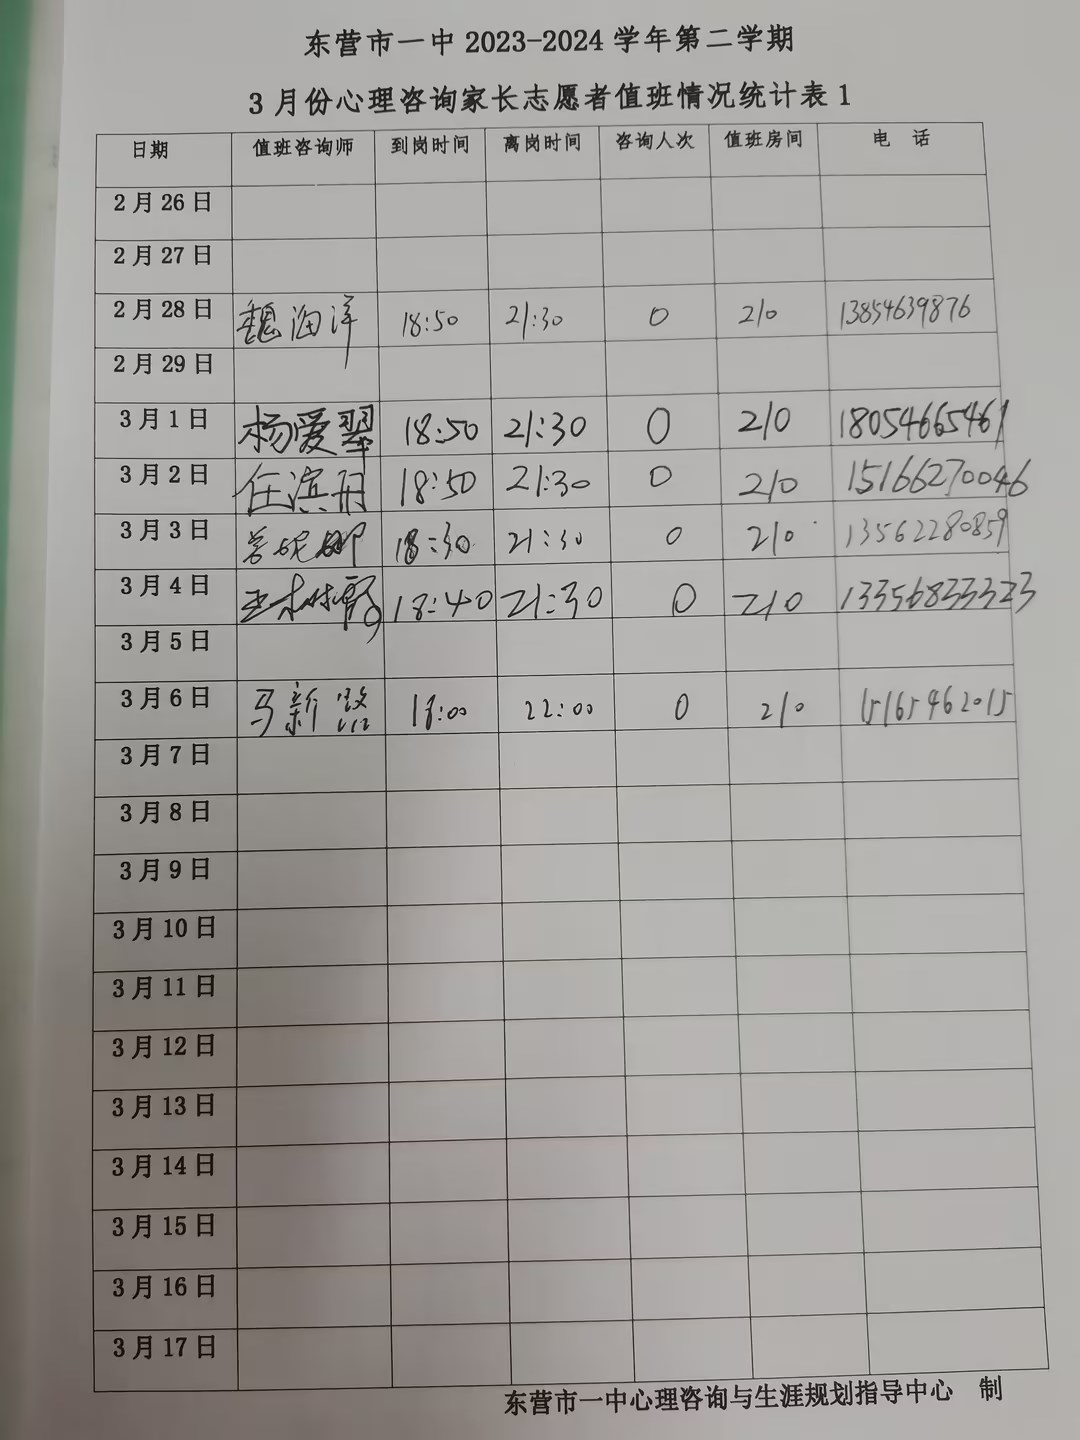 东营市一中 2023-2024 学年第二学期
3 月份心理咨询家长志愿者值班情况统计表 1
日期 值班咨询师 到岗时间 离岗时间 咨询人次 值班房间 电 话
2 月 26 日
2 月 27 日
2 月 28 日 魏海洋 18:50 21:30 0 210 13854639876
2 月 29 日
3 月 1 日 杨爱翠 18:50 21:30 0 210 18054665461
3 月 2 日 任滨丹 18:50 21:30 0 210 15166270046
3 月 3 日 18:30 21:30 0 210 13562280859
3 月 4 日 18:40 21:30 0 210 13356833323
3 月 5 日
3 月 6 日 马新 22:00 0 210 15165462015
3 月 7 日
3 月 8 日
3 月 9 日
3 月 10 日
3 月 11 日
3 月 12 日
3 月 13 日
3 月 14 日
3 月 15 日
3 月 16 日
3 月 17 日
东营市一中心理咨询与生涯规划指导中心 制